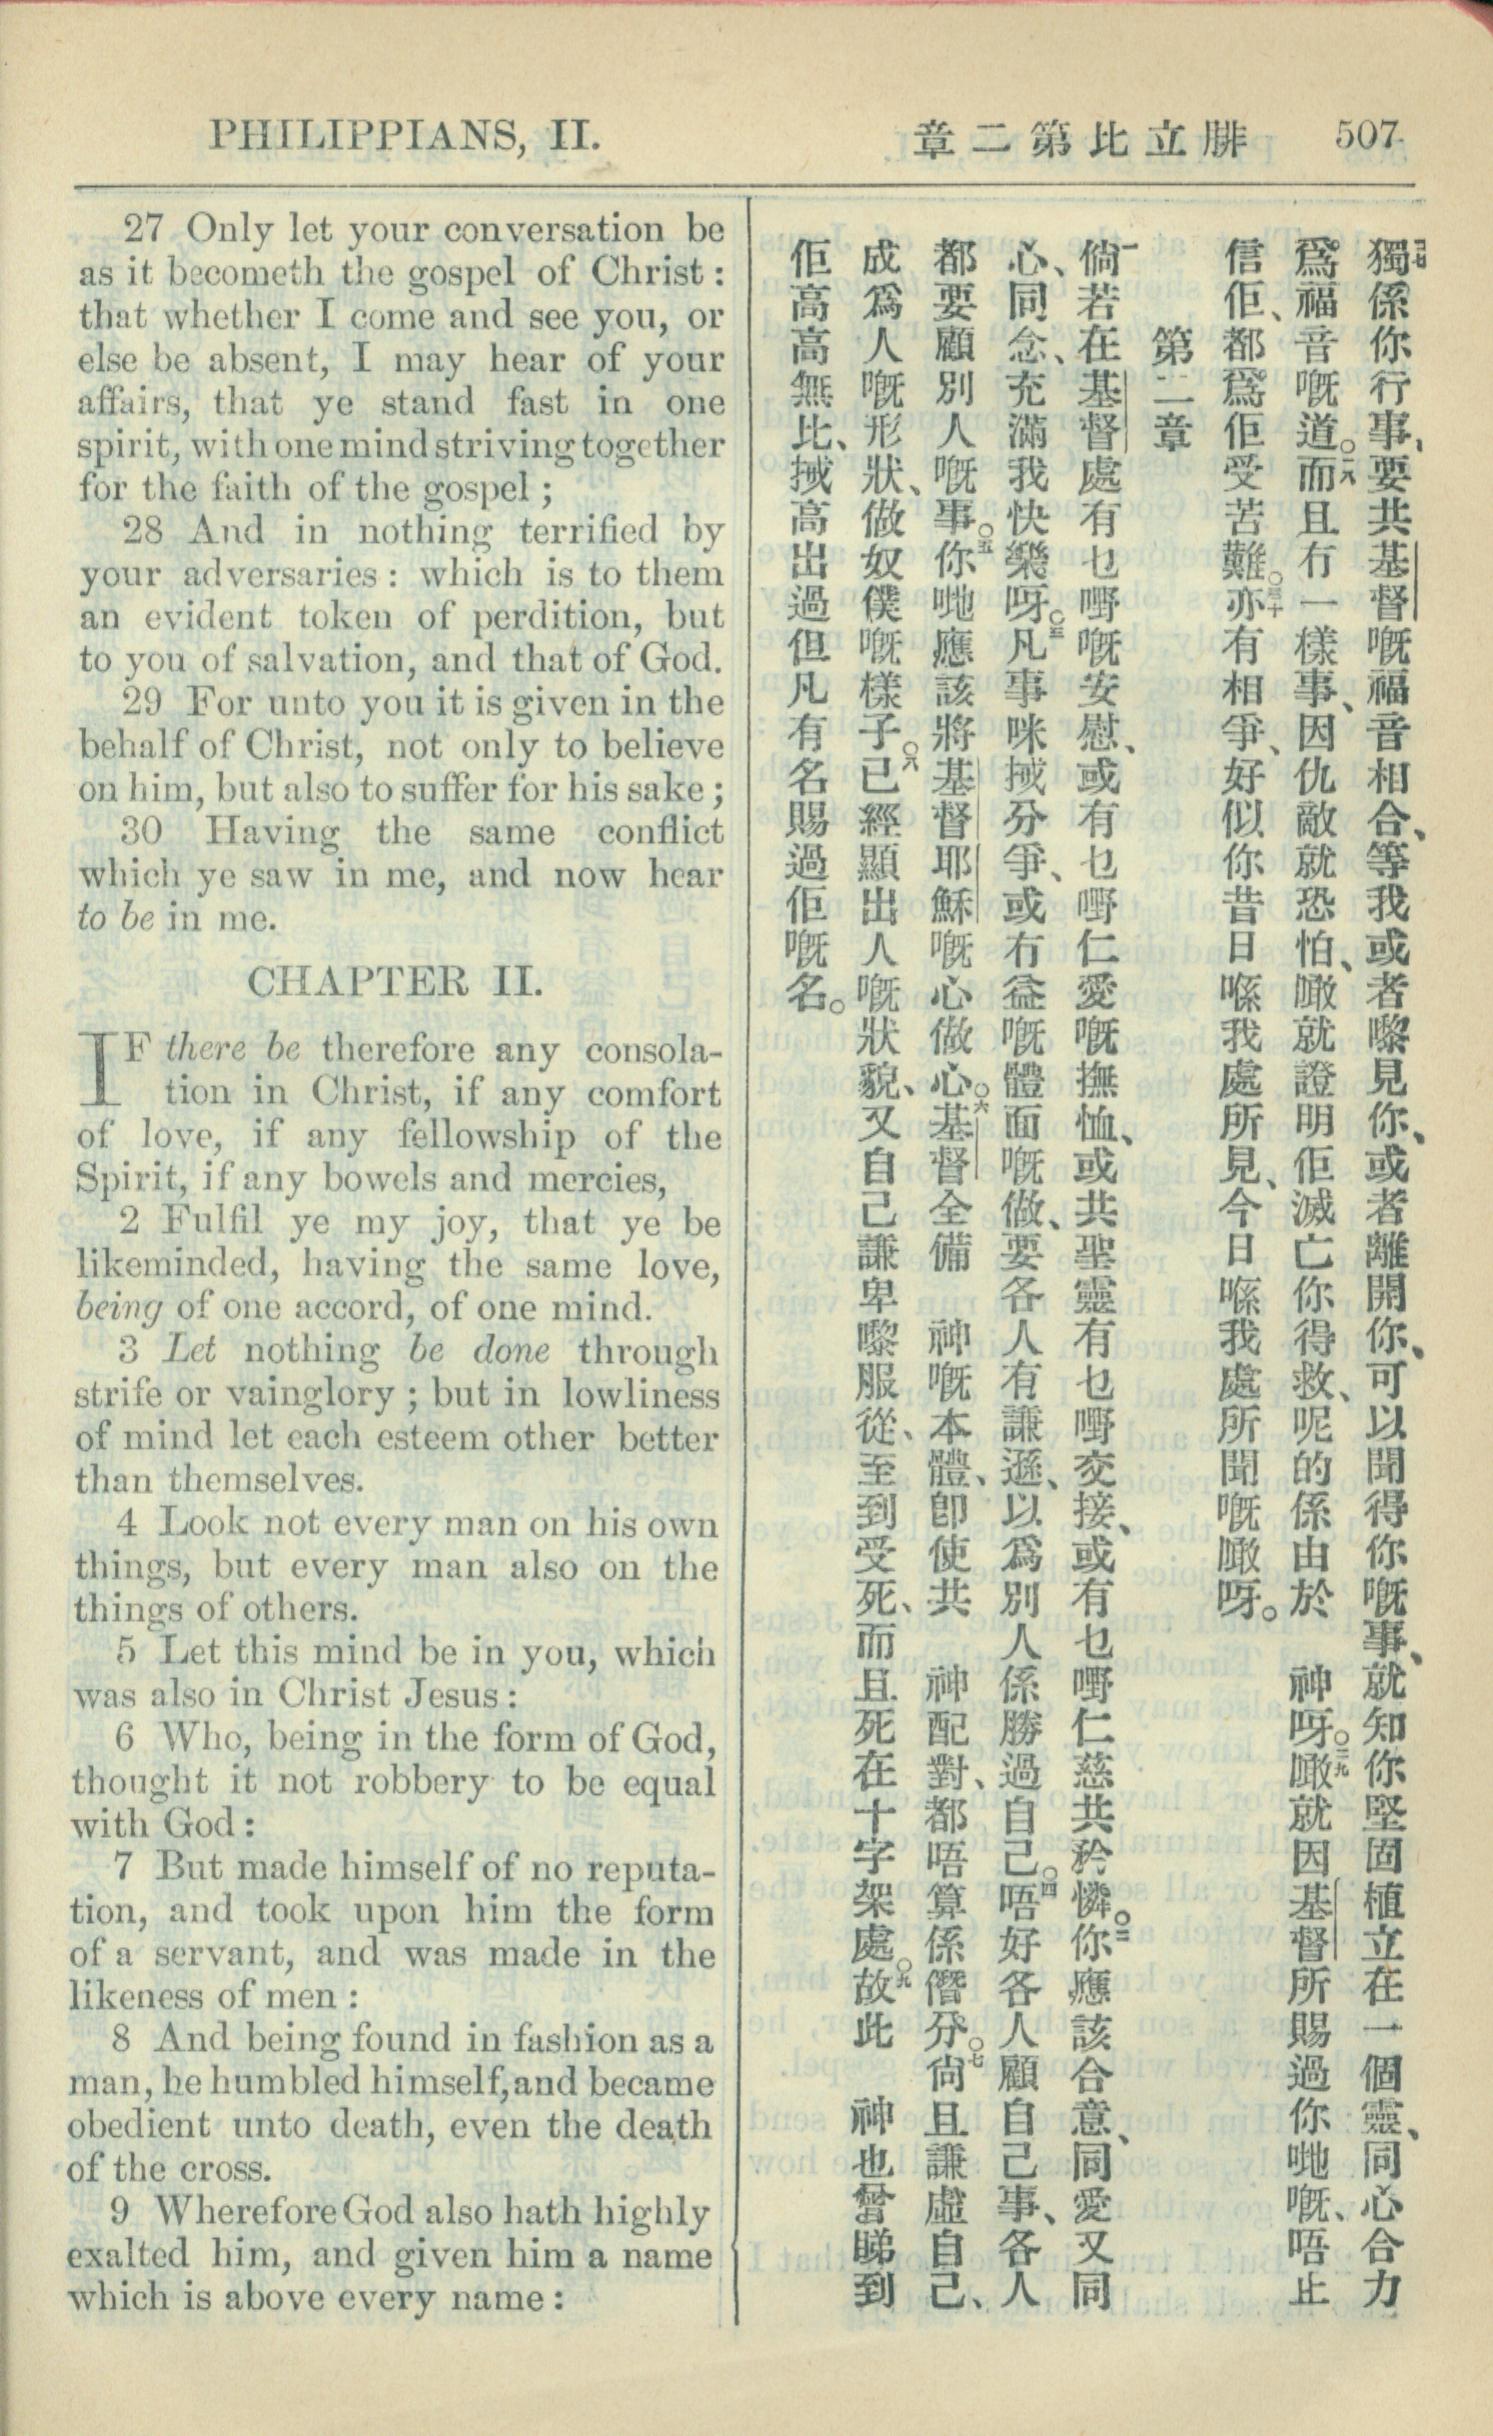 PHILIPPIANS, II.
章二第比立腓 507
27 Only let your conversation be
as it becometh the gospel of Christ:
that whether I come and see you, or
else be absent, I may hear of your
affairs, that ye stand fast in one
spirit, with one mind striving together
for the faith of the gospel;
28 And in nothing terrified by
your adversaries: which is to them
an evident token of perdition, but
to you of salvation, and that of God.
29 For unto you it is given in the
behalf of Christ, not only to believe
on him, but also to suffer for his sake;
30 Having the same conflict
which ye saw in me, and now hear
to be in me.
CHAPTER II.
IF there be therefore any consola-
tion in Christ, if any comfort
of love, if any fellowship of the
Spirit, if any bowels and mercies,
2 Fulfil ye my joy, that ye be
likeminded, having the same love,
being of one accord, of one mind.
3 Let nothing be done through
strife or vainglory; but in lowliness
of mind let each esteem other better
than themselves.
4 Look not every man on his own
things, but every man also on the
things of others.
5 Let this mind be in you, which
was also in Christ Jesus:
6 Who, being in the form of God,
thought it not robbery to be equal
with God:
7 But made himself of no reputa-
tion, and took upon him the form
of a servant, and was made in the
likeness of men:
8 And being found in fashion as a
man, he humbled himself, and became
obedient unto death, even the death
of the cross.
9 Wherefore God also hath highly
exalted him, and given him a name
which is above every name:
二七獨係你行事、要共基督嘅福音相合、等我或者嚟見你、或者離開你、可以聞得你嘅事、就知你堅固植立在一個靈、同心合力
爲福音嘅道。○二八而且冇一樣事、因仇敵就恐怕、噉就證明佢滅亡你得救、呢的係由於 神呀。○二九噉就因基督所賜過你哋嘅、唔止
信佢、都爲佢受苦難。○三十亦有相爭、好似你昔日喺我處所見、今日喺我處所聞嘅噉呀。
第二章
一倘若在基督處有乜嘢嘅安慰、或有乜嘢仁愛嘅撫恤、或共聖靈有乜嘢交接、或有乜嘢仁慈共矜憐。○二你應該合意、同愛又同
心、同念、充滿我快樂呀。○三凡事咪㧒分爭、或冇益嘅體面嘅做、要各人有謙遜、以爲別人係勝過自己。○四唔好各人顧自己事、各人
都要顧別人嘅事。○五你哋應該將基督耶穌嘅心做心。○六基督全備 神嘅本體、卽使共 神配對、都唔算係僭分。○七尙且謙虛自己、
成爲人嘅形狀、做奴僕嘅樣子。○八已經顯出人嘅狀貌、又自己謙卑嚟服從、至到受死、而且死在十字架處。○九故此 神也曾睇到
佢高高無比、㧒高出過但凡有名賜過佢嘅名。